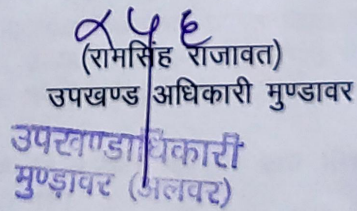 (रामसिंह राजावत)
उपखण्ड अधिकारी मुण्डावर
उपखण्डाधिकारी
मुण्ड़ावर (अलवर)